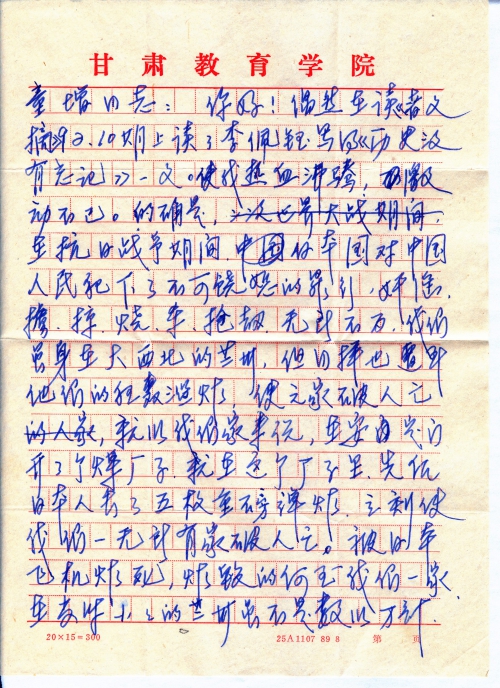 甘肃教育学院
童增同志： 你好！偶然在读《读者文
摘》92.10期上读了李佩钰写的《历史没
有忘记》一文。使我热血沸腾，激
动不已。的确是，二次世界大战期间，
在抗日战争期间，中国 日本国对中国
人民犯下了不可饶恕的罪行，奸淫、
掳、掠、烧、杀、抢劫，无所不为，我们
虽身在大西北的兰州，但同样也遭到
他们的狂轰滥炸，使之家破人亡
的人家，就以我们家来说，在安 门
开了个 厂子，就在这个厂子里，先后
日本人丢了五枚重磅炸弹，立刻使
我们一 有家破人亡。被日本
飞机炸死，炸毁的何止我们一家，
在 小小的兰州虽不是数以万计，
20×15=300
25A1107 89 8
第 页